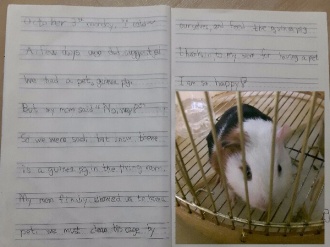 A few days ago I suggested
We had a pet, guinea pig.
But my mom said "No,
So we were sad. but now there
is a guinea pig in the living room.
My mom finally allowed us to have
pet. we must clean the cage by
ourselves, and feed the guinea pig.
I thanks to my mom for having a pet.
I am so happy!